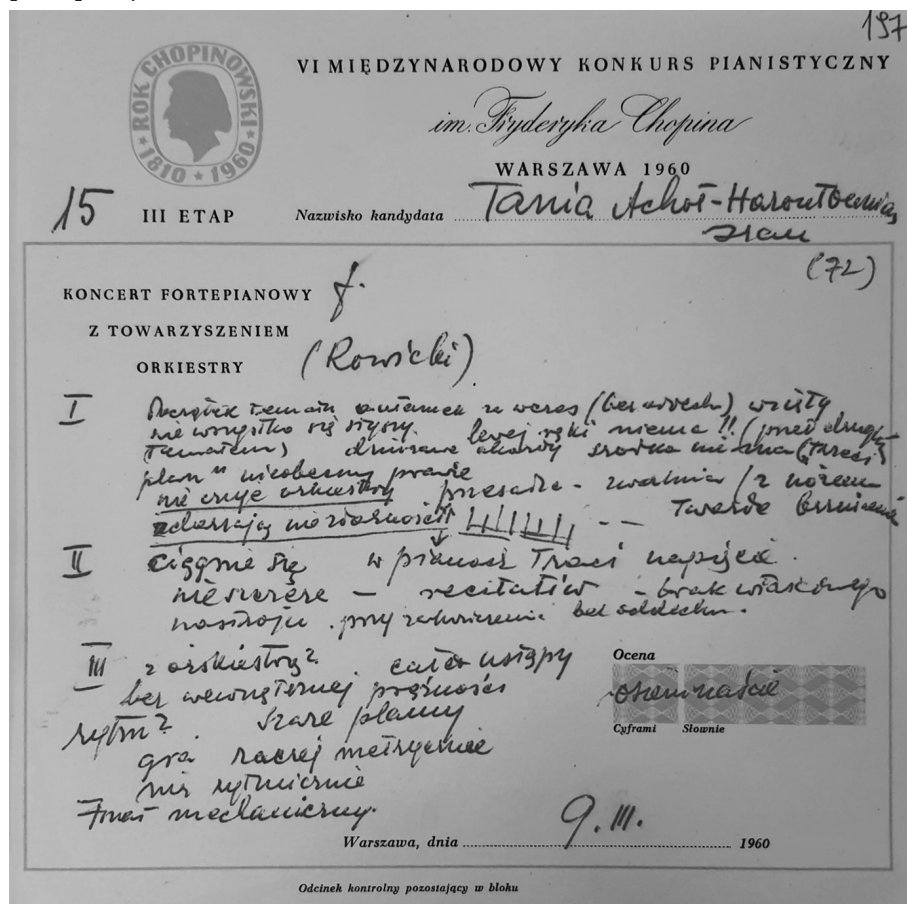 197
ROK CHOPINOWSKI
★ 1810 ★ 1960 ★
VI MIĘDZYNARODOWY KONKURS PIANISTYCZNY
im. Fryderyka Chopina
WARSZAWA 1960
15 III ETAP Nazwisko kandydata Tania Achot-Haroutounian
Iran
(72)
KONCERT FORTEPIANOWY f.
Z TOWARZYSZENIEM
ORKIESTRY (Rowicki)
I Początek tematu za wcześ (bez oddech) wzięty
nie wszystko się słyszy. lewej ręki niema!! (przed drugim
tematem) akordy środka nie ma („trzeci
plan" nieobecny prawie
nie czuje orkiestry przesadza - zwalnia
Twarde brzmienie
II ciągnie się w pianach traci napięcie.
nieszczere - recitatiw - brak właściwego
nastroju. przy zakończeniu bez oddechu.
III z orkiestrą? całe ustępy
bez wewnętrznej prężności
rytm? szare plamy
gra raczej metrycznie
niż rytmicznie
Finał mechaniczny.
Ocena
osiemnaście
Cyframi Słownie
Warszawa, dnia 9. III. 1960
Odcinek kontrolny pozostający w bloku